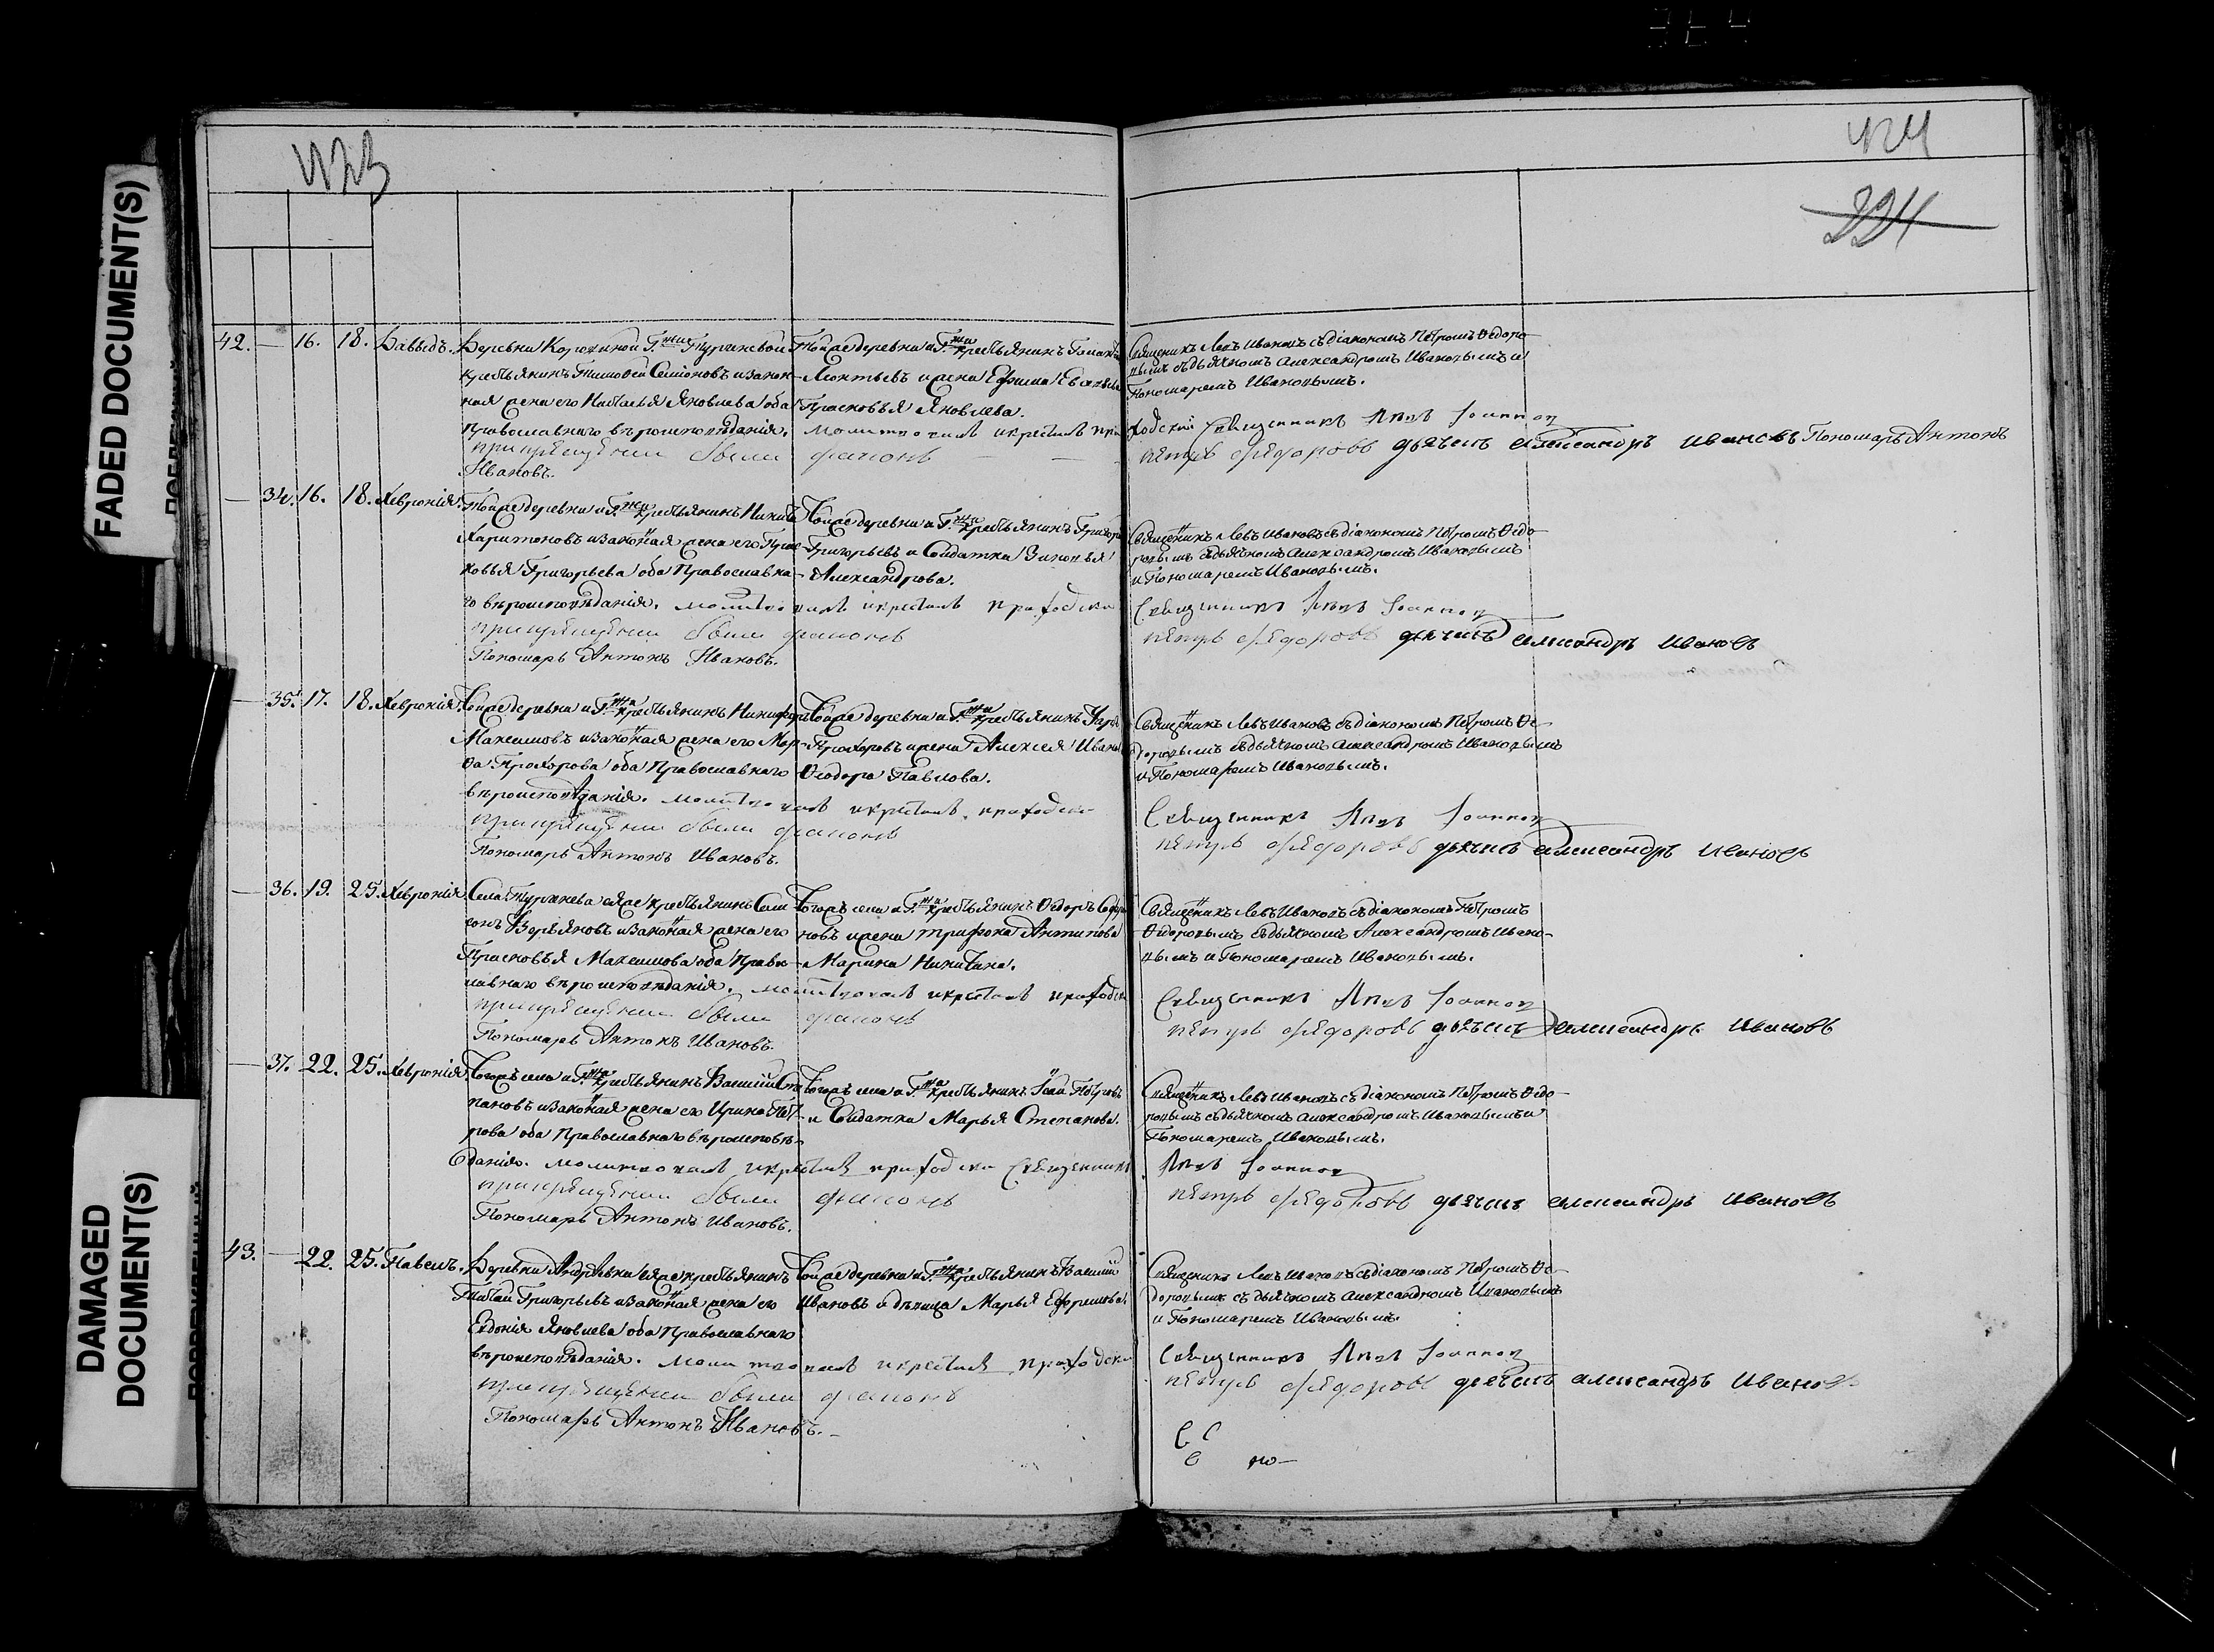 FADED DOCUMENT(S)
DAMAGED
DOCUMENT(S)
423
424
42. — 16. 18. Давыдъ.
Деревни Г.жи Тургеневой
крестьянинъ Тимофей Семіоновъ и закон-
ная жена его Наталья Яковлева оба
Православнаго вѣроисповѣданія.
Тойже деревни и Г.жи крестьянинъ
Леонтьевъ и жена Ефима
Прасковья Яковлева.
Священникъ Левъ Ивановъ съ діакономъ Петромъ Ѳедоро-
вымъ съ дьячкомъ Александромъ Ивановымъ и
Пономаремъ Ивановымъ.
молитвовалъ и крестилъ при
ходскій Священникъ Левъ Іоанновъ
при крещеніи были діаконъ
петръ федоровъ дьячекъ александръ ивановъ Пономарь Антонъ
Ивановъ.
— 34. 16. 18. Хевронія.
Тойже деревни и Г.жи крестьянинъ Никита
Харитоновъ и законная жена его Прас-
ковья Григорьева оба Православна-
го вѣроисповѣданія.
Тойже деревни и Г.жи крестьянинъ Григорій
Григорьевъ и Солдатка Зиновья
Александрова.
Священникъ Левъ Ивановъ съ діакономъ Петромъ Ѳедо-
ровымъ съ дьячкомъ Александромъ Ивановымъ
и Пономаремъ Ивановымъ.
молитвовалъ и крестилъ приходски
Священникъ Левъ Іоанновъ
при крещеніи были діаконъ
петръ федоровъ дьячекъ александръ ивановъ
Пономарь Антонъ Ивановъ.
— 35. 17. 18. Хевронія.
Тойже деревни и Г.жи крестьянинъ Никифоръ
Максимовъ и законная жена его Мар-
ѳа Прохорова оба Православнаго
вѣроисповѣданія.
Тойже деревни и Г.жи крестьянинъ
Прохоровъ и жена Алексея Иванова
Ѳеодора Павлова.
Священникъ Левъ Ивановъ съ діакономъ Петромъ Ѳе-
доровымъ съ дьячкомъ Александромъ Ивановымъ
и Пономаремъ Ивановымъ.
молитвовалъ и крестилъ приходски
Священникъ Левъ Іоанновъ
при крещеніи были діаконъ
петръ федоровъ дьячекъ александръ ивановъ
Пономарь Антонъ Ивановъ.
— 36. 19. 25. Хевронія.
Села Тургенева еяже крестьянинъ
Аверьяновъ и законная жена его
Прасковья Максимова оба Правос-
лавнаго вѣроисповѣданія.
Тогожъ села и Г.жи крестьянинъ Ѳедоръ
новъ и жена Трифона Антипова
Марина Никитина.
Священникъ Левъ Ивановъ съ діакономъ Петромъ
Ѳедоровымъ съ дьячкомъ Александромъ Ивано-
вымъ и Пономаремъ Ивановымъ.
молитвовалъ и крестилъ приходски
Священникъ Левъ Іоанновъ
при крещеніи были діаконъ
петръ федоровъ дьячекъ александръ ивановъ
Пономарь Антонъ Ивановъ.
— 37. 22. 25. Хевронія.
Тогожъ села и Г.жи крестьянинъ Василий Сте-
пановъ и законная жена его Ирина Пет-
рова оба Православнаго вѣроисповѣ-
данія.
Тогожъ села и Г.жи крестьянинъ Петровъ
и Солдатка Марья Степанова.
Священникъ Левъ Ивановъ съ діакономъ Петромъ Ѳедо-
ровымъ съ дьячкомъ Александромъ Ивановымъ и
Пономаремъ Ивановымъ.
молитвовалъ и крестилъ приходски Священникъ
Левъ Іоанновъ
при крещеніи были діаконъ
петръ федоровъ дьячекъ александръ ивановъ
Пономарь Антонъ Ивановъ.
43. — 22. 25. Павелъ.
Деревни Андревки еяже крестьянинъ
Григорьевъ и законная жена его
Евдокія Яковлева оба Православнаго
вѣроисповѣданія.
Тойже деревни и Г.жи крестьянинъ Василий
Ивановъ и дѣвица Марья Ефремова.
Священникъ Левъ Ивановъ съ діакономъ Петромъ Ѳе-
доровымъ съ дьячкомъ Александромъ Ивановымъ
и Пономаремъ Ивановымъ.
молитвовалъ и крестилъ приходски
Священникъ Левъ Іоанновъ
при крещеніи были діаконъ
петръ федоровъ дьячекъ александръ ивановъ
Пономарь Антонъ Ивановъ.